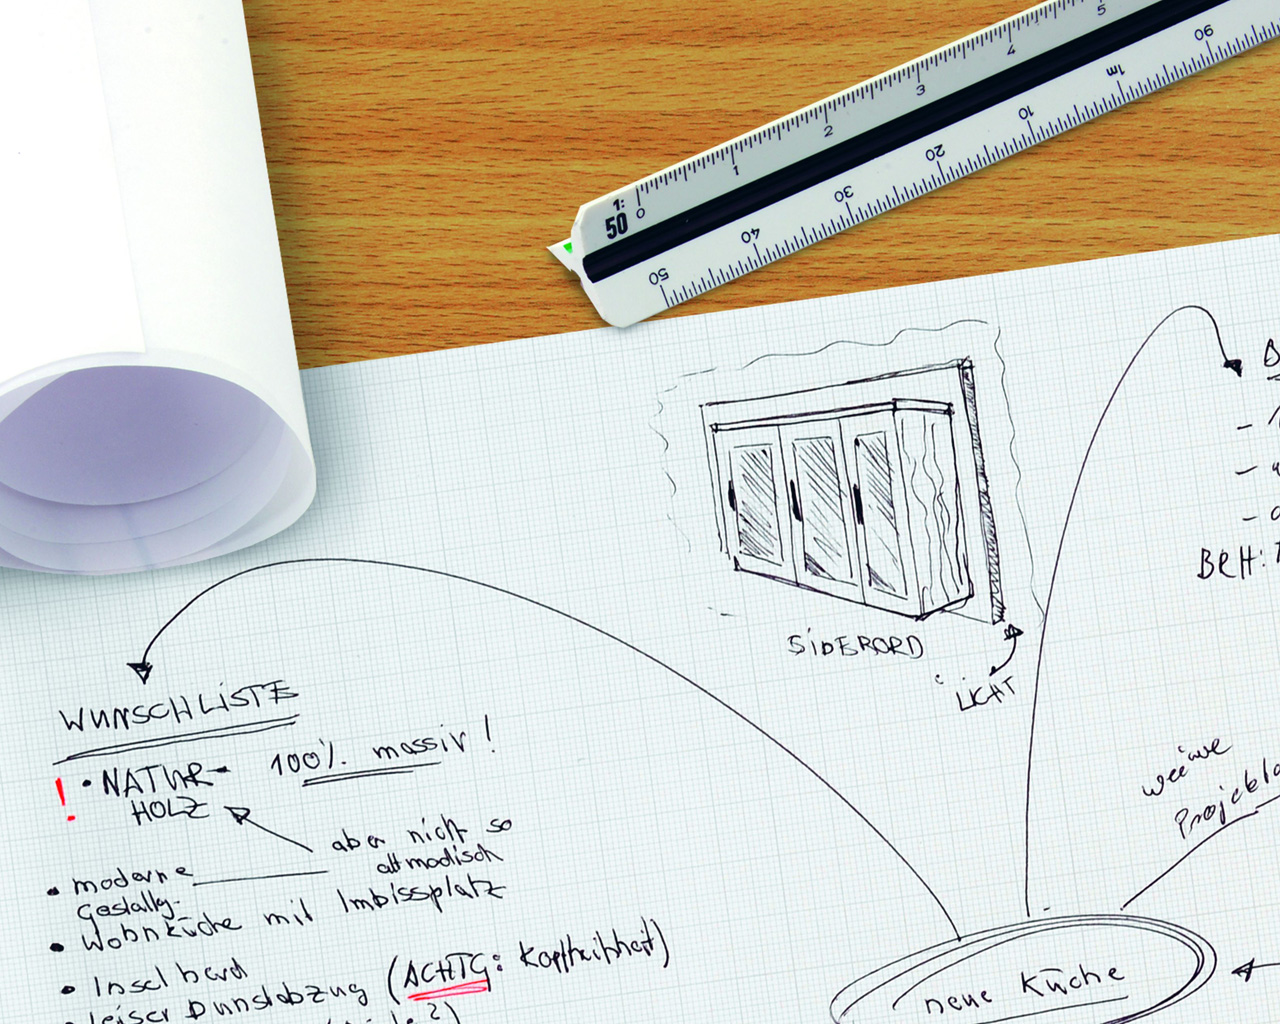 1:
50
0 1 2 3 4 5
50 40 30 20 10 1m 90
SIDEBORD
LICHT
BRH:
WUNSCHLISTE
! • NATUR- 100% massiv!
HOLZ
aber nicht so
altmodisch
• moderne
Gestaltg.
• Wohnküche mit Imbissplatz
• Inselherd
• leiser Dunstabzug (ACHTG: Kopffreiheit)
neue Küche